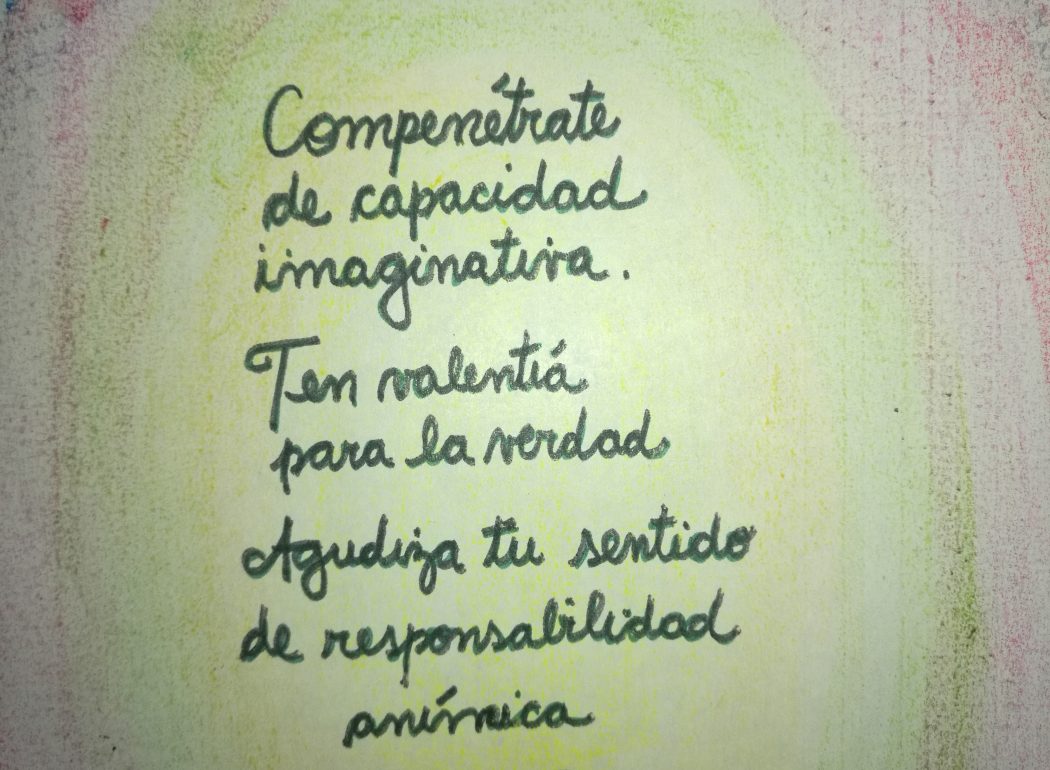 Compenétrate
de capacidad
imaginativa.
Ten valentiá
para la verdad
Agudiza tu sentido
de responsabilidad
anímica